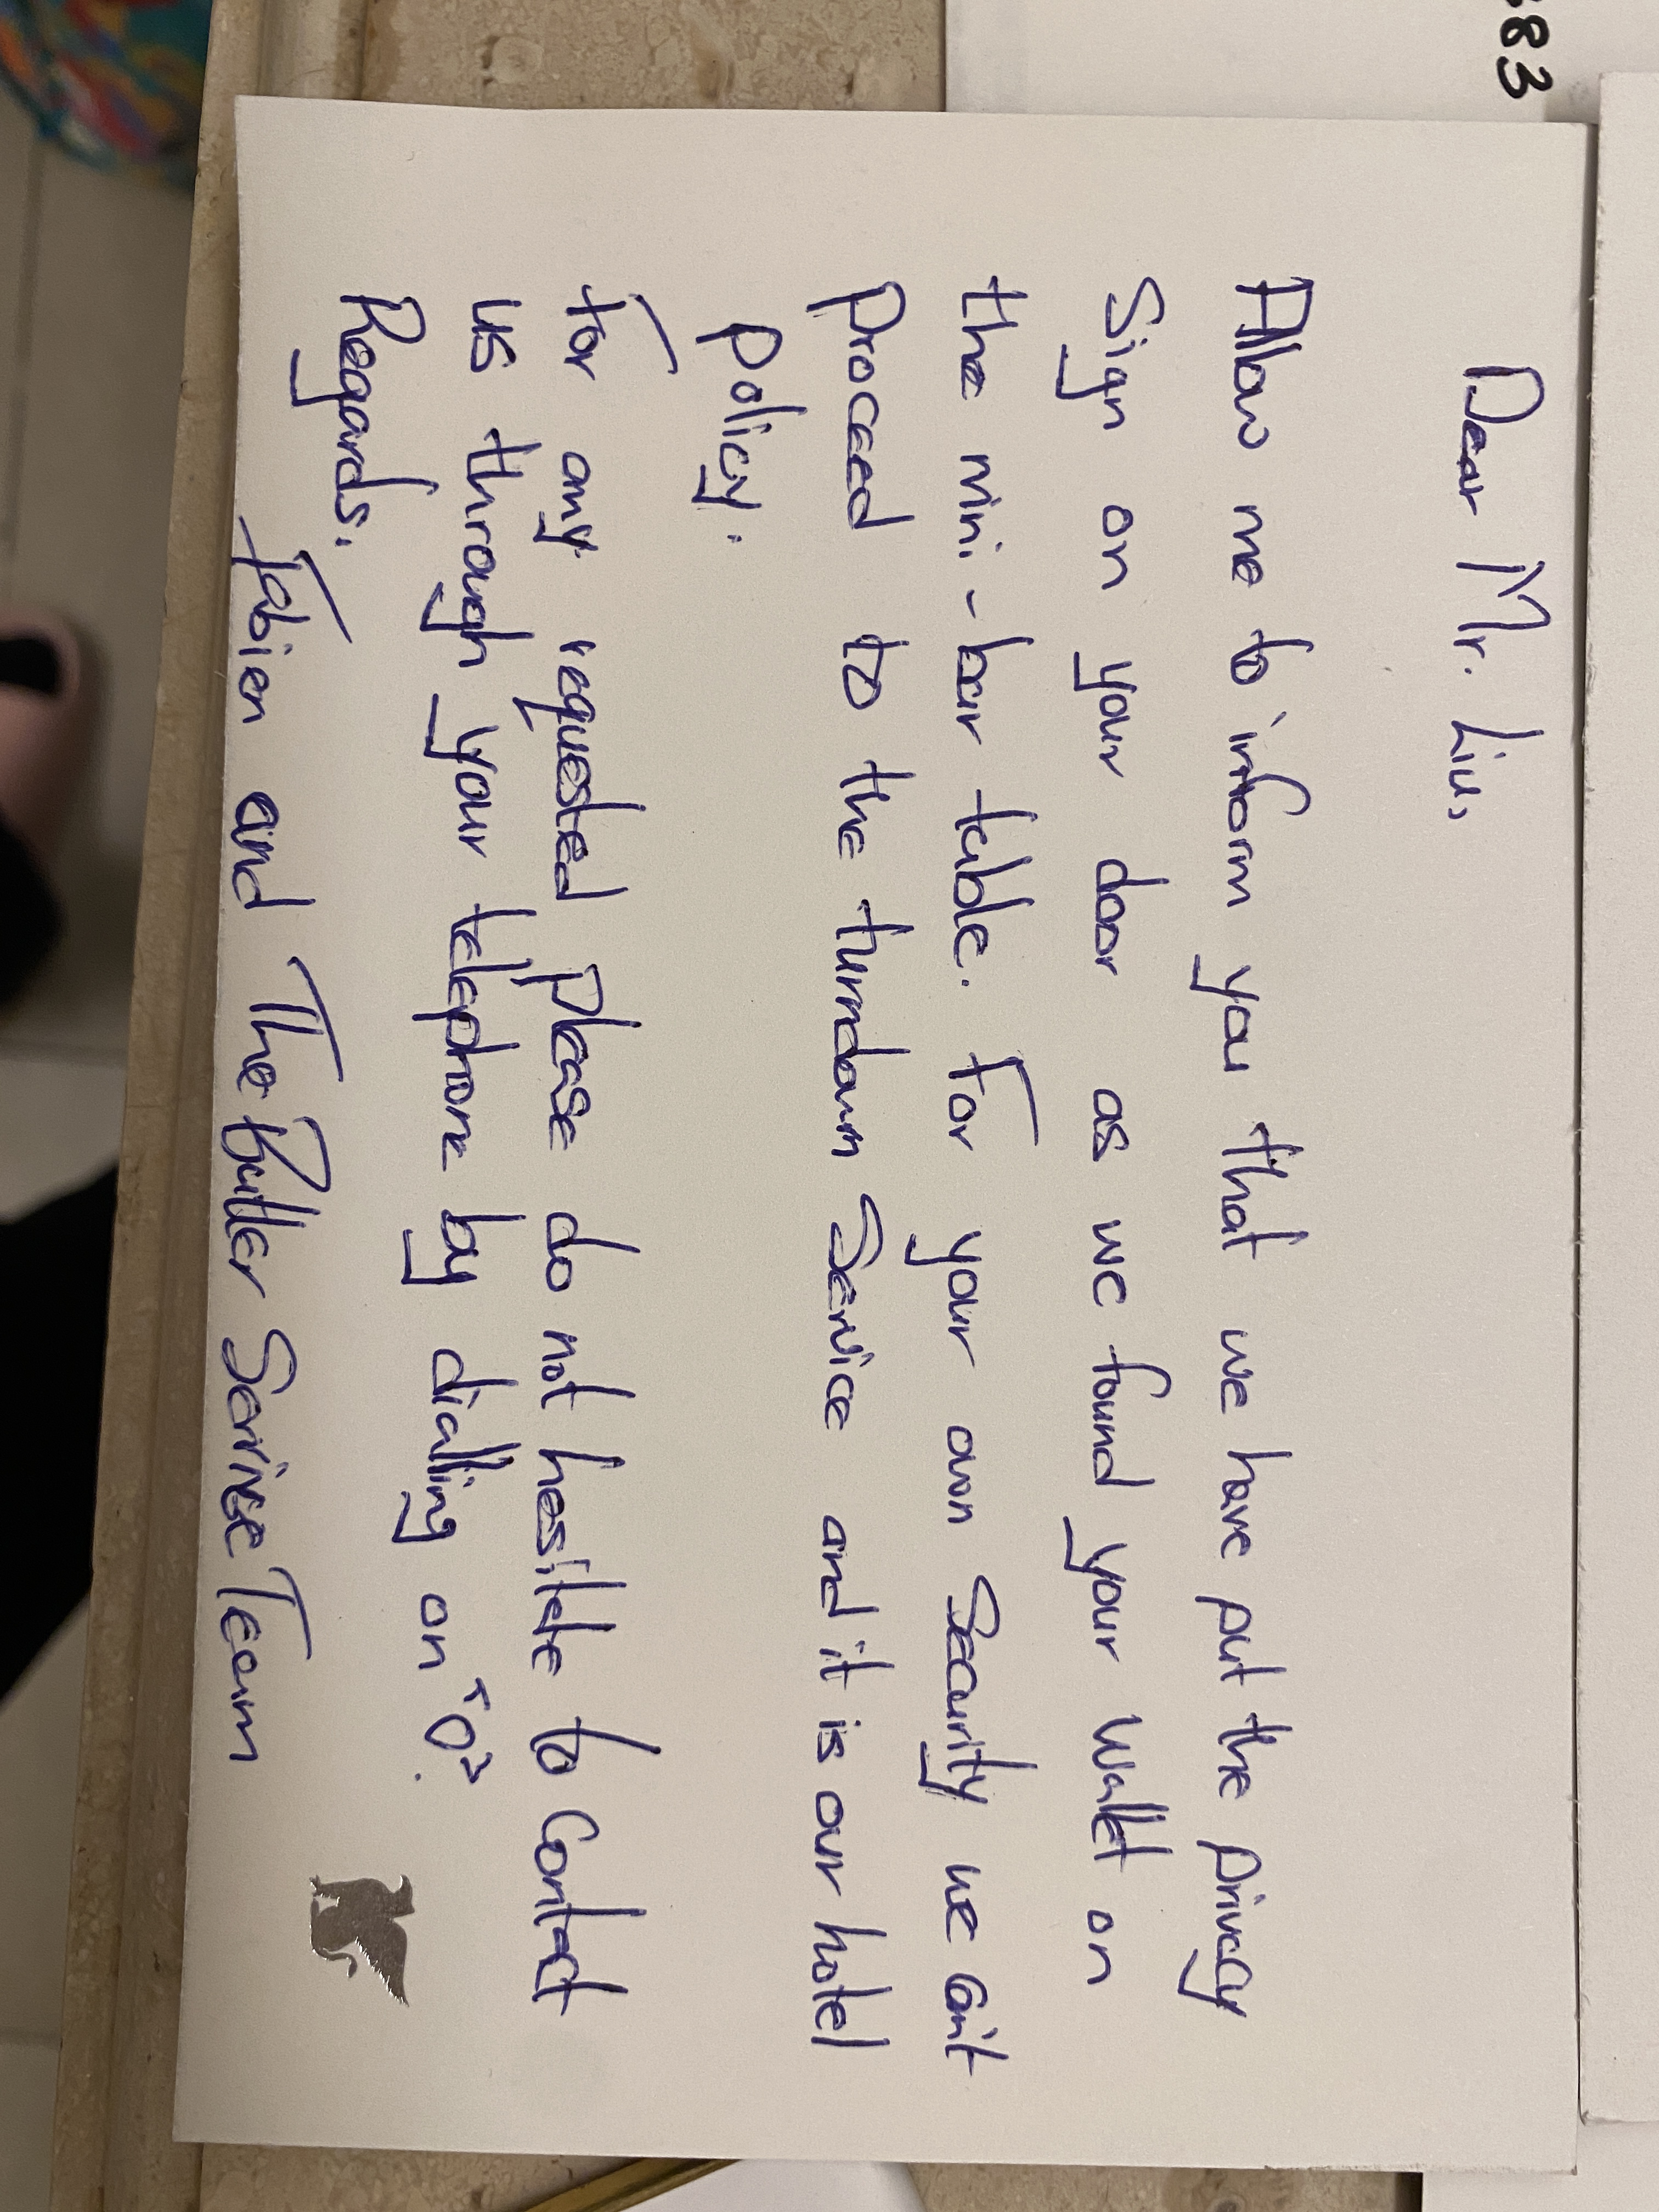 Dear Mr. Liu,
Allow me to inform you that we have put the privacy
Sign on your door as we found your wallet on
the mini-bar table. For your own Security we can't
Proceed to the turndown Service and it is our hotel
policy.
For any requested please do not hesitate to contact
us through your telephone by dialling on "0".
Regards.
Fabien and The Butler Service Team
83